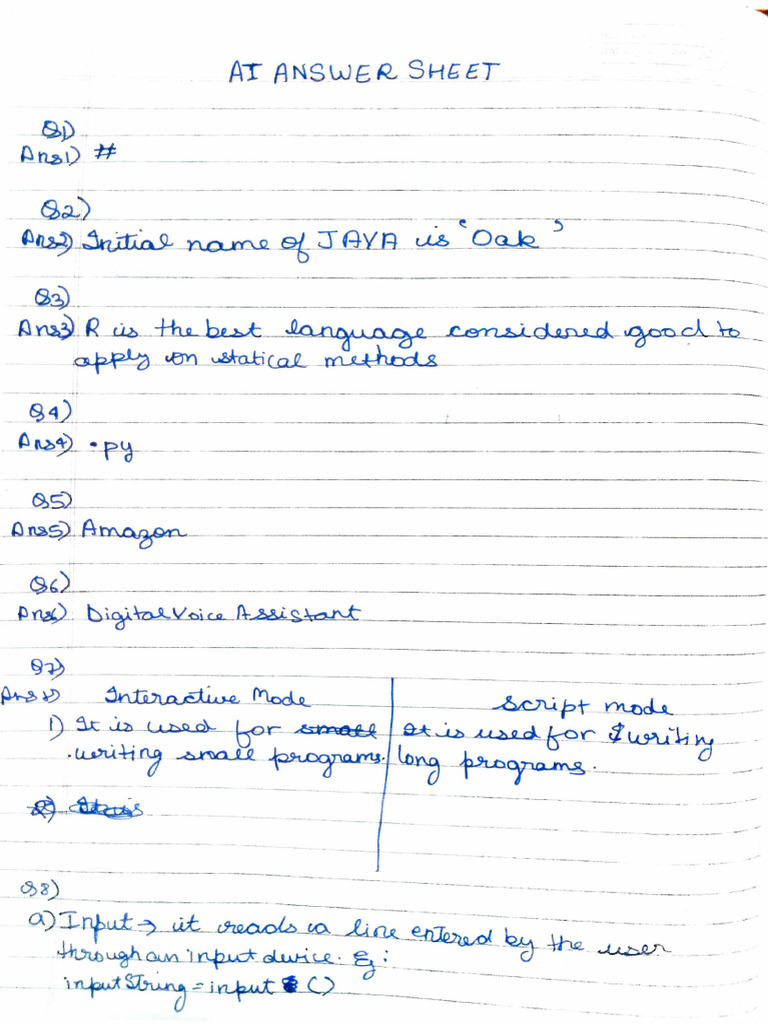 AI ANSWER SHEET
Q1)
Ans1) #
Q2)
Ans2) Initial name of JAVA is 'Oak'
Q3)
Ans3) R is the best language considered good to
apply on statical methods
Q4)
Ans4) .py
Q5)
Ans5) Amazon
Q6)
Ans6) Digital Voice Assistant
Q7)
Ans7) Interactive Mode script mode
1) It is used for small It is used for writing
writing small programs. long programs.
Q8)
a) Input → it reads a line entered by the user
through an input device. Eg:
inputString = input ()